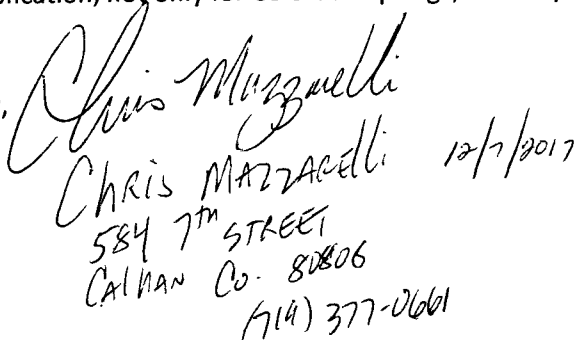 Chris Mazzarelli
Chris MAZZARElli 12/7/2017
584 7th STREET
CAlHAN Co. 80806
(719) 377-0661